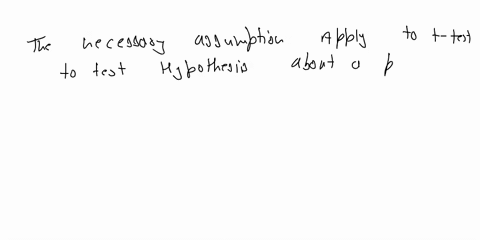 The necessary assumption Apply to t-test
to test Hypothesis about a p